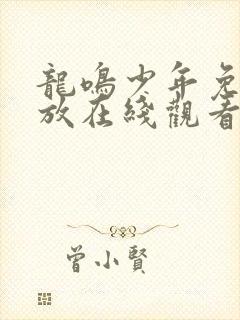 龍鳴少年免
放在綫觀看
曾小賢